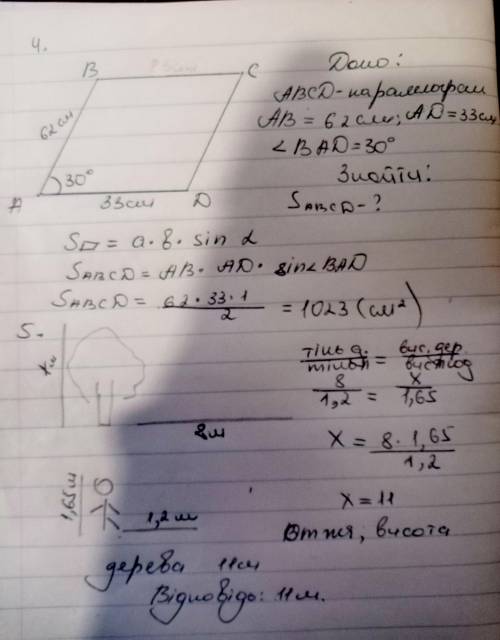 4.
B C
Дано:
ABCD-паралелограм
AB = 62см; AD = 33см
62см
∠BAD = 30°
30°
Знайти:
A 33см D
SABCD - ?
S▱ = a · b · sin α
SABCD = AB · AD · sin∠BAD
SABCD = 62 · 33 · 1 / 2 = 1023 (см²)
5.
x м
тінь д. / тінь л = вис. дер / вис. люд
8 / 1,2 = x / 1,65
8м
X = 8 · 1,65 / 1,2
1,65м
1,2м
x = 11
Отже, висота
дерева 11м
Відповідь: 11м.